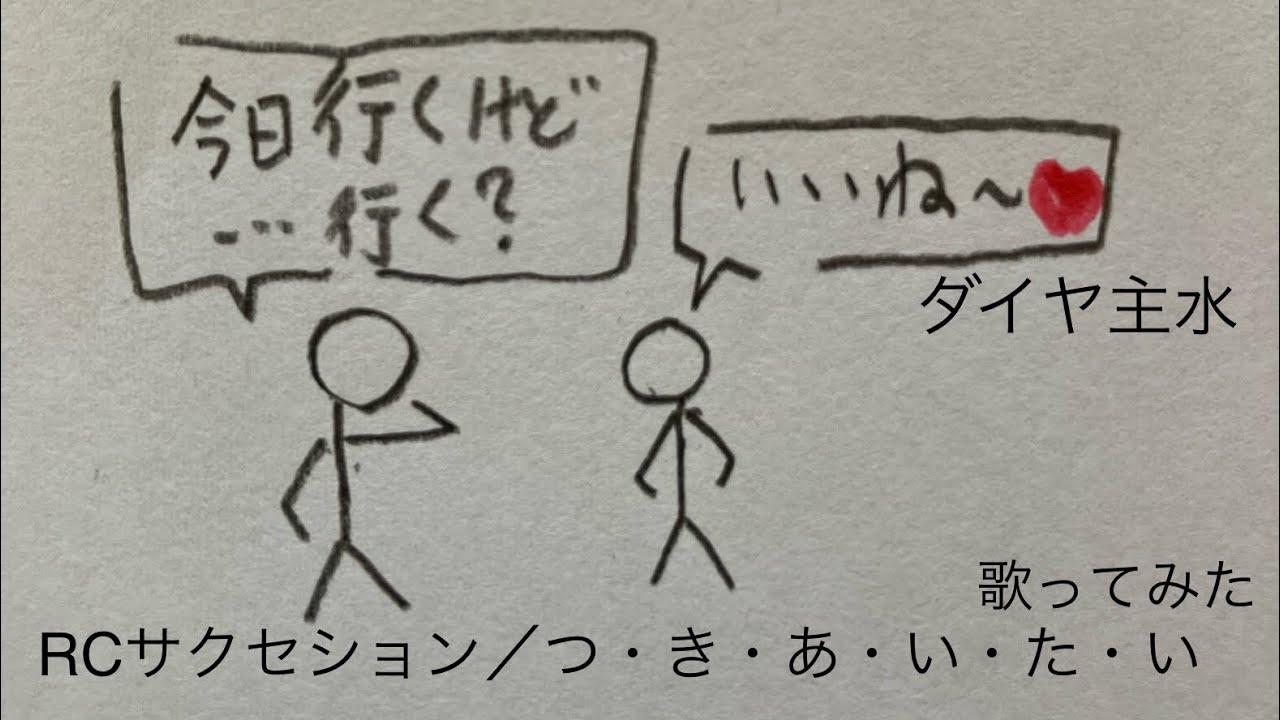 今日行くけど
…行く?
いいね〜
ダイヤ主水
歌ってみた
RCサクセション／つ・き・あ・い・た・い